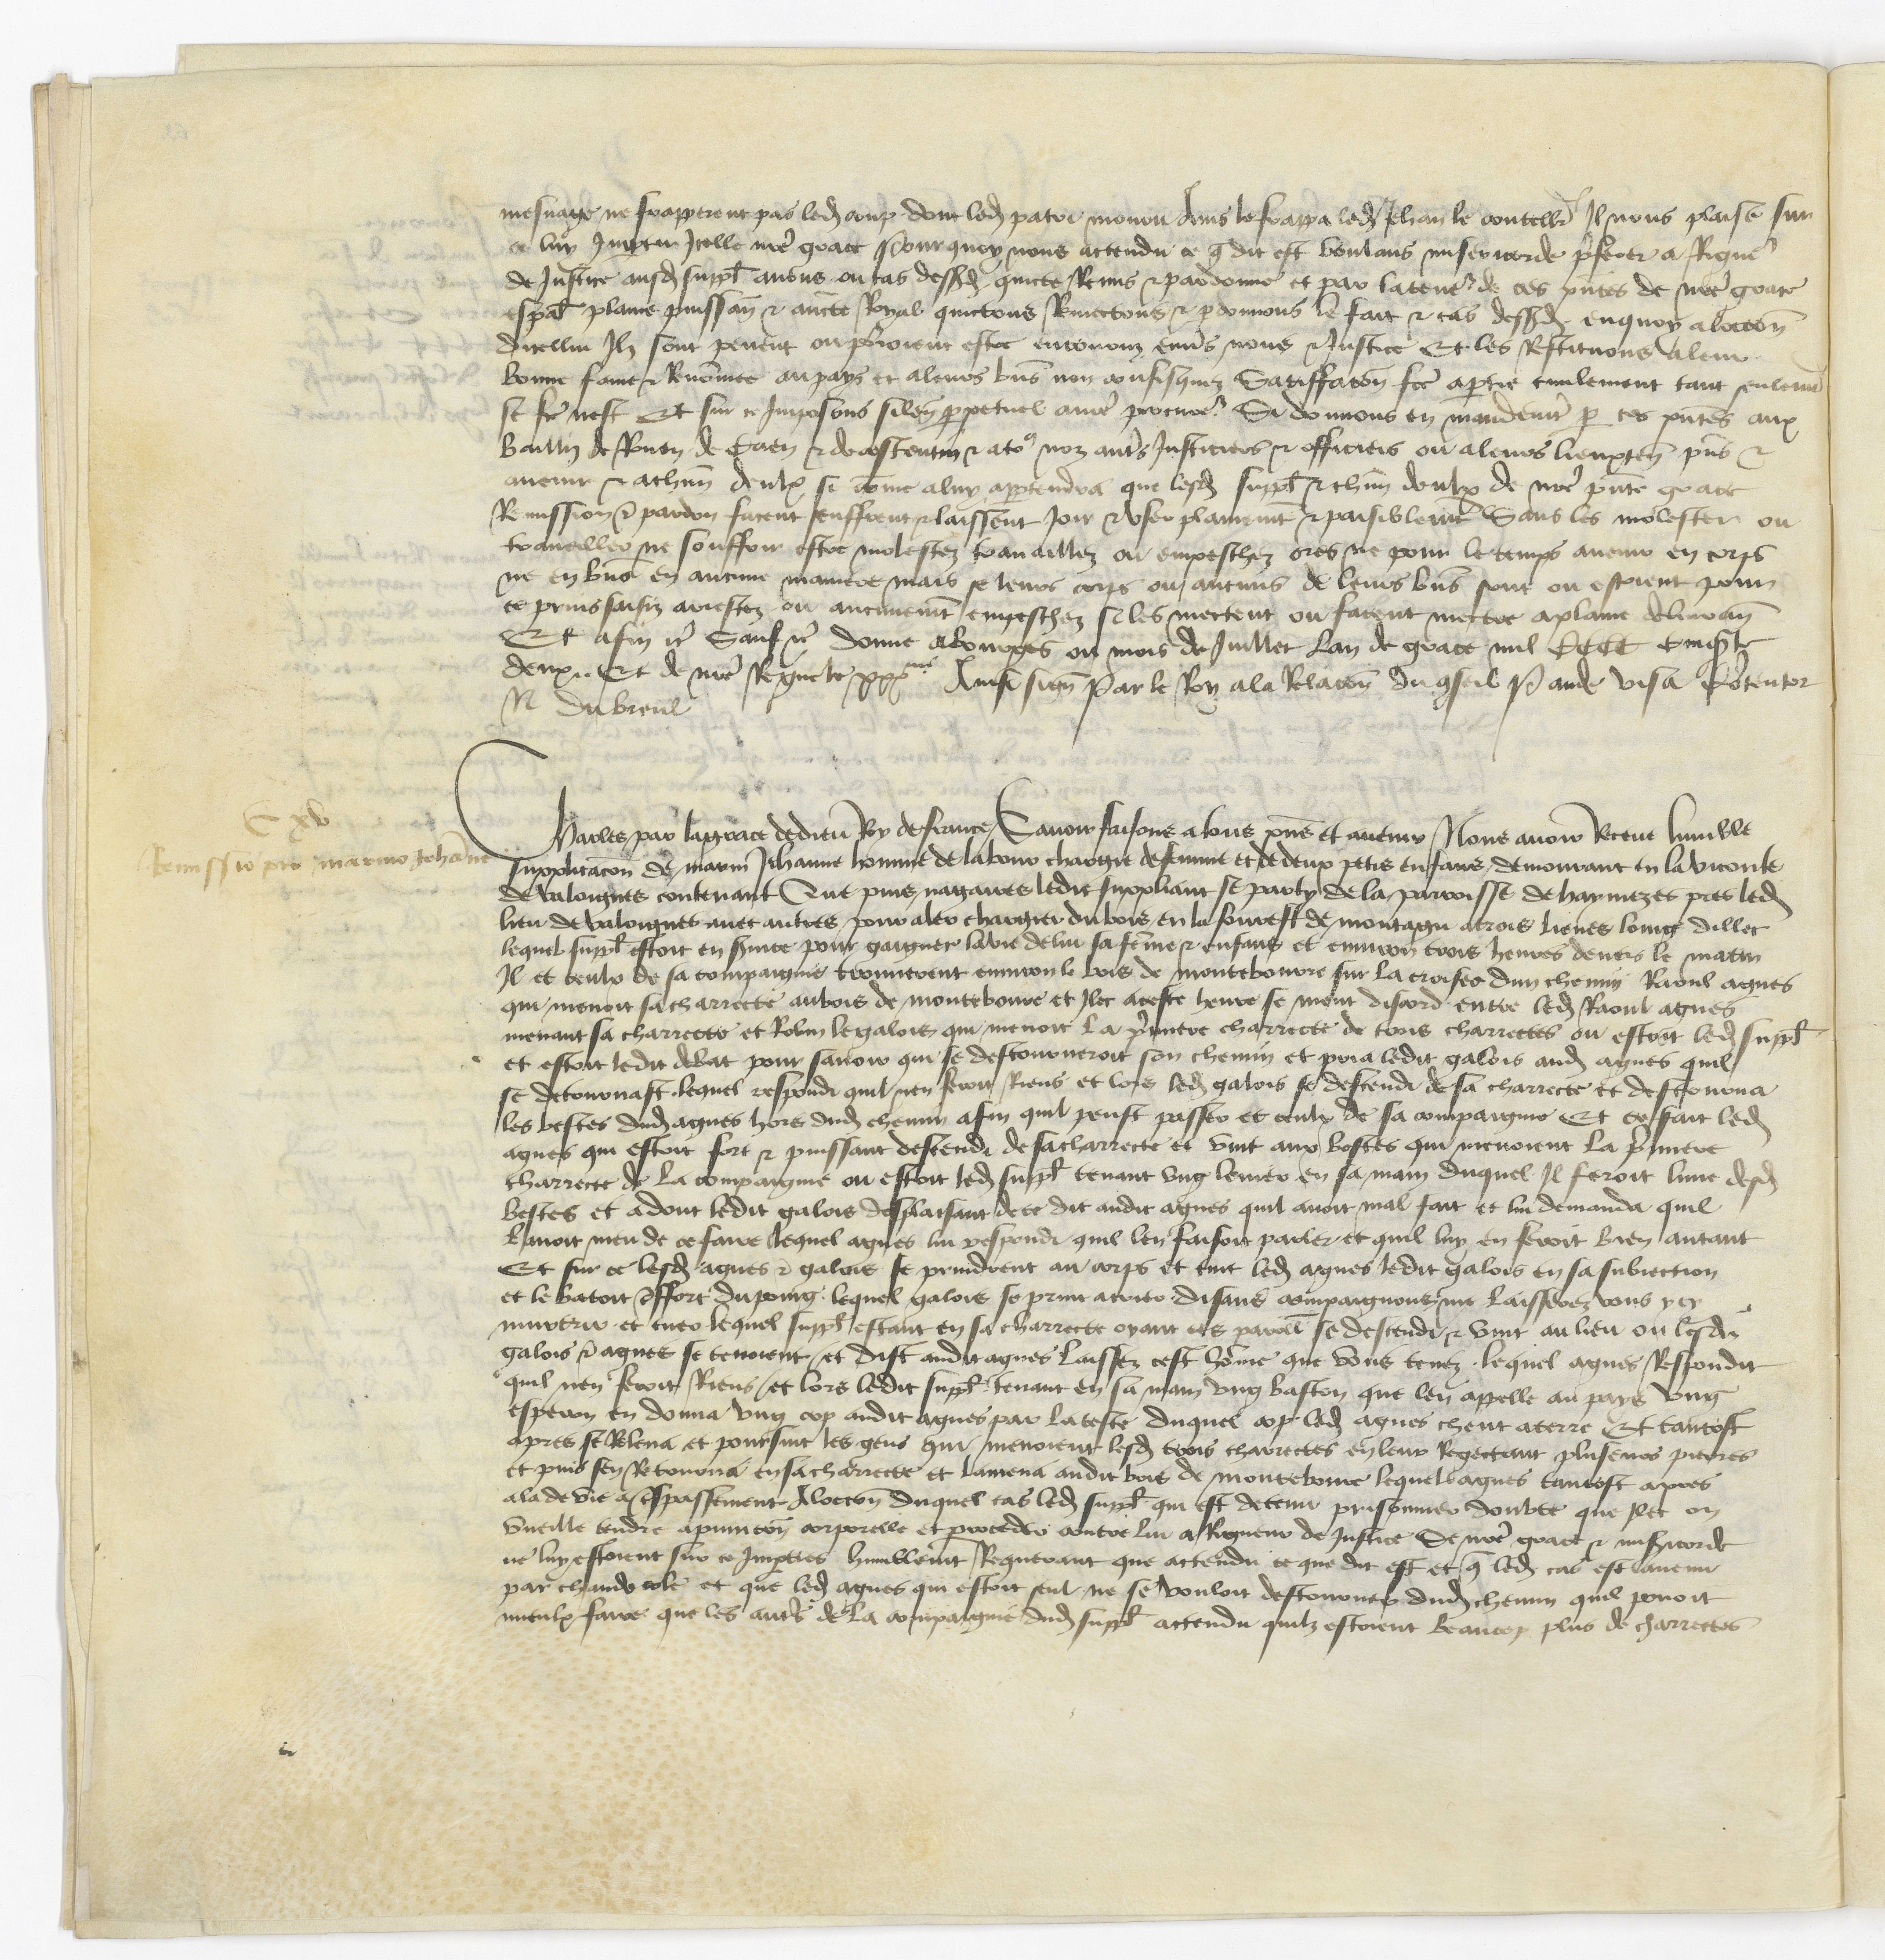 mesnage ne frapperent pas led coup dont led patri mouru Ains le frappa led Jehan le contellr Il nous plaise sur
ce luy Impartir Icelle nre grace Pour quoy nous attendu ce q dit est voulans misericorde pferer a Rigueur
de Justice ausd suppl avons ou cas dessusd quicte Remis & pardonne et par la teneur de ces pntes de nre grace
espal plaine puissan & aucte Royal quictons Remectons & pdonnons le fait & cas dessusd enquoy aloccon
dicellui Ilz sont peuent ou pourroient estre encouruz envs nous & Justice Et les Restituons a leur
bonne fame & Renommee au pays et a leurs bns non confisquez Satiffacon fce a partie civilement tant seulemt
se fce nest Et sur ce Imposons silen ppetuel a nre procure Si donnons en mandemt p ces pntes aux
Bailliz de Rouen de Caen & de costentin & a to9 noz autrs Justiciers & officiers ou a leurs lieuxten pns &
avenir & a chun deulx si come a luy appartendra que lesd suppl & chun deulx de nre pnte grace
Remission & pardon facent seuffrent & laissent Joir & user plainemt & paisiblemt Sans les molester ou
travailler ne souffrir estre molestez travaillez ou empeschez ores ne pour le temps avenir en corps
ne en bns en aucune maniere mais se leurs corps ou aucuns de leurs bns sont ou estoient pour
ce prins saisiz arrestez ou aucunemt empeschez si les mectent ou facent mectre a plaine delivran
Et afin etc Sauf etc donne a bourges ou mois de Juillet lan de grace mil CCCC cinqte
deux Et de nre Regne le xxxme Ainsi sign Par le Roy a la Relacon du conseil P aude visa Contentor
N du breul
C xv
Remissio pro marino Johanne
Charles par la grace de dieu Roy de france Savoir faisons a tous pns et avenir Nous avoir Receue lumble
supplicacon de marin Jehanne homme de labour chargie de femme et de deux petis enfans demourant en la viconte
de valoignes contenant Que puis nagaires ledit suppliant se party de la parroisse de haymezes pres led
lieu de valoignes avec autres pour aler chargier du bois en la fourest de montagu a trois lieues loing dillec
lequel suppl estoit en service pour gaigner la vie de lui sa feme & enfans et environ trois heures devers le matin
Il et ceulx de sa compaignie trouverent environ le bois de montebourc sur la croisee dun chemin Raoul agnes
qui menoit sa charrecte au bois de montebourc et Ilec a ceste heure se meut discord entre led Raoul agnes
menant sa charrecte et Robin le galois qui menoit la pmiere charrecte de trois charrectes ou estoit led suppl
et estoit ledit debat pour savoir qui se destourneroit son chemin et pria ledit galois aud agnes quil
se detournast lequel respondi quil nen feroit Riens et lors led galois se descendi de sa charrecte et destourna
les bestes dud agnes hors dud chemin afin quil peust passer et ceulx de sa compaignie Et ce fait led
agnes qui estoit fort & puissant descendi de sa charrecte et vint aux bestes qui menoient la pmiere
charrecte de la compaignie ou estoit led suppl tenant ung levier en sa main duquel Il feroit lune desd
bestes et adont ledit galois desplaisant de ce dit audit agnes quil avoit mal fait et lui demanda quil
lavoit meu de ce faire lequel agnes lui respondi quil len faisoit parler et quil luy en feroit bien autant
Et sur ce lesd agnes & galois se prindrent au corps et tint led agnes ledit galois en sa subiection
et le batoit & ffort du poing lequel galois se print a crier disans compaignons me laisserez vous ycy
murtrir et tuer lequel suppl estant en sa charrecte oyant ces parolles se descendi & vint au lieu ou lesd
galois & agnes se tenoient et dist audit agnes laissez cest home que vous tenez lequel agnes Respondit
quil nen feroit Riens et lors ledit suppl tenant en sa main ung baston que len appelle au pays ung
esperon en donna ung cop audit agnes par la teste duquel cop led agnes cheut a terre Et tantost
apres se Releva et poursuit les gens qui menoient lesd trois charrectes en leur Regectant pluseurs pierres
et puis sen Retourna en sa charrecte et lamena audit bois de montebourc lequel agnes tantost apres
ala de vie a trespassement Aloccon duquel cas led suppl qui est detenu prisonnier doubte que Ilec on
vueille tendre a punicon corporelle et proceder contre lui a Rigueur de Justice Se nre grace & misericorde
ne luy estoient sur ce Imparties humblemt Requerant que attendu ce que dit est et q led cas est avenu
par chaude cole et que led agnes qui estoit seul ne se vouloit destourner dud chemin quil povoit
mieulx faire que les autrs de la compaignie dud suppl attendu quilz estoient beaucop plus de charrectes